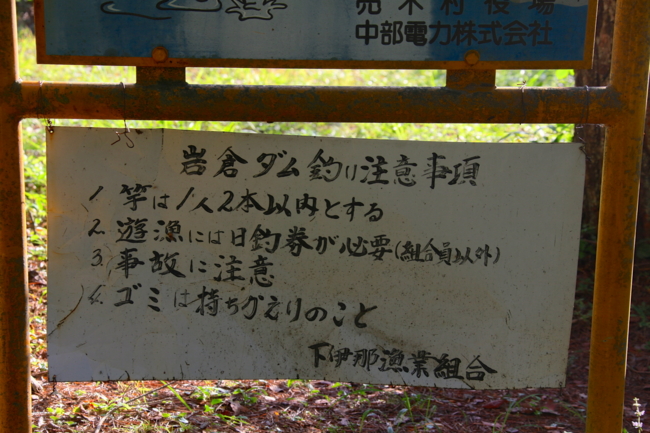 売木村役場
中部電力株式会社
岩倉ダム釣り注意事項
1. 竿は1人2本以内とする
2. 遊漁には日釣券が必要(組合員以外)
3. 事故に注意
4. ゴミは持ちかえりのこと
下伊那漁業組合